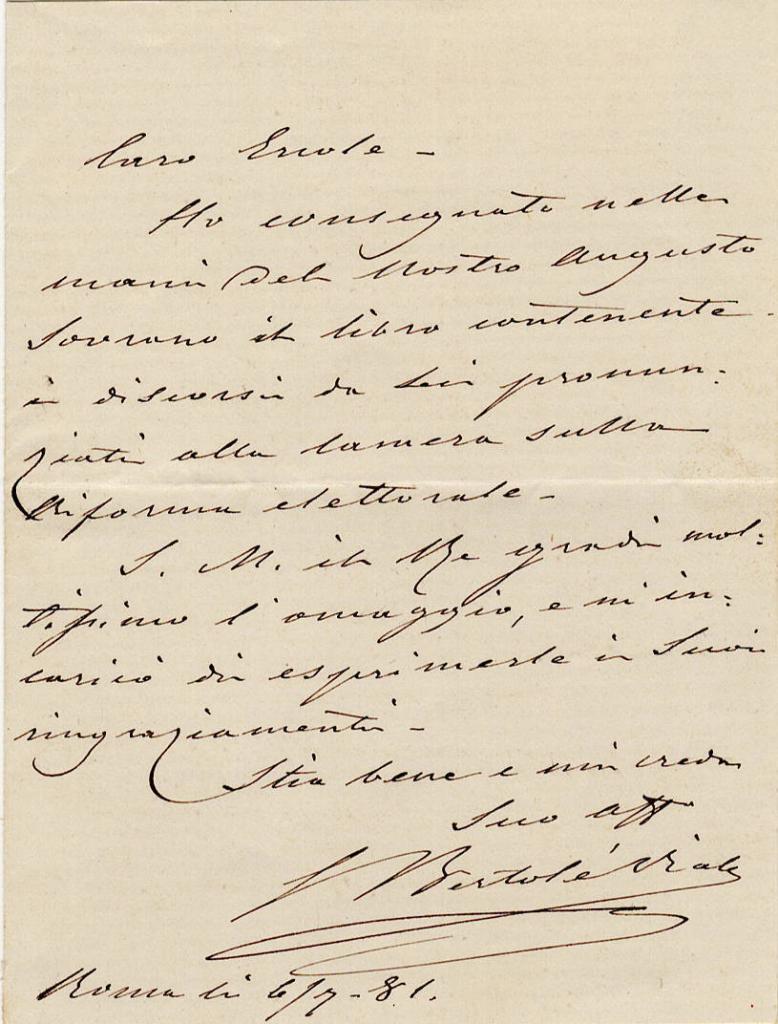 Caro Ercole -
Ho consegnato nelle
mani del Nostro Augusto
Sovrano il libro contenente
i discorsi da Lei pronun:
ziati alla Camera sulla
Riforma elettorale -
S. M. il Re gradì mol:
tissimo l'omaggio, e m'in:
caricò di esprimerle i Suoi
ringraziamenti -
Stia bene e mi creda
Suo aff
Bertolé Viale
Roma li 6/7-81.